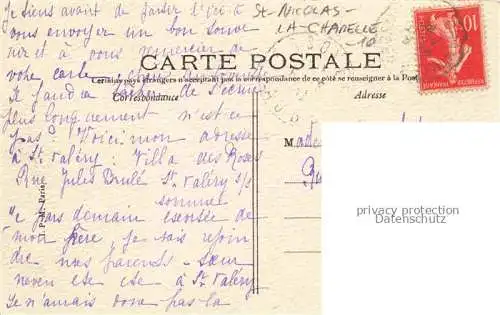 Je tiens avant de partir d'ici à
vous envoyer un bon souve
nir et à vous remercier de
votre carte
St-NICOLAS-
LA-CHAPELLE
10
10
CARTE POSTALE
Certains pays étrangers n'acceptant pas la correspondance de ce côté se renseigner à la Poste
Correspondance
Adresse
Je de t'écrire
plus longuement n'est-ce
pas? Voici mon adresse
à St Valéry: Villa des Roses
Rue Jules Brulé St Valéry s/
somme
Je pars demain escortée de
mon frère, je vais rejoin
dre nos parents - sœur
neveu etc etc à St Valéry
Je n'aurais pas la
M
privacy protection
Datenschutz